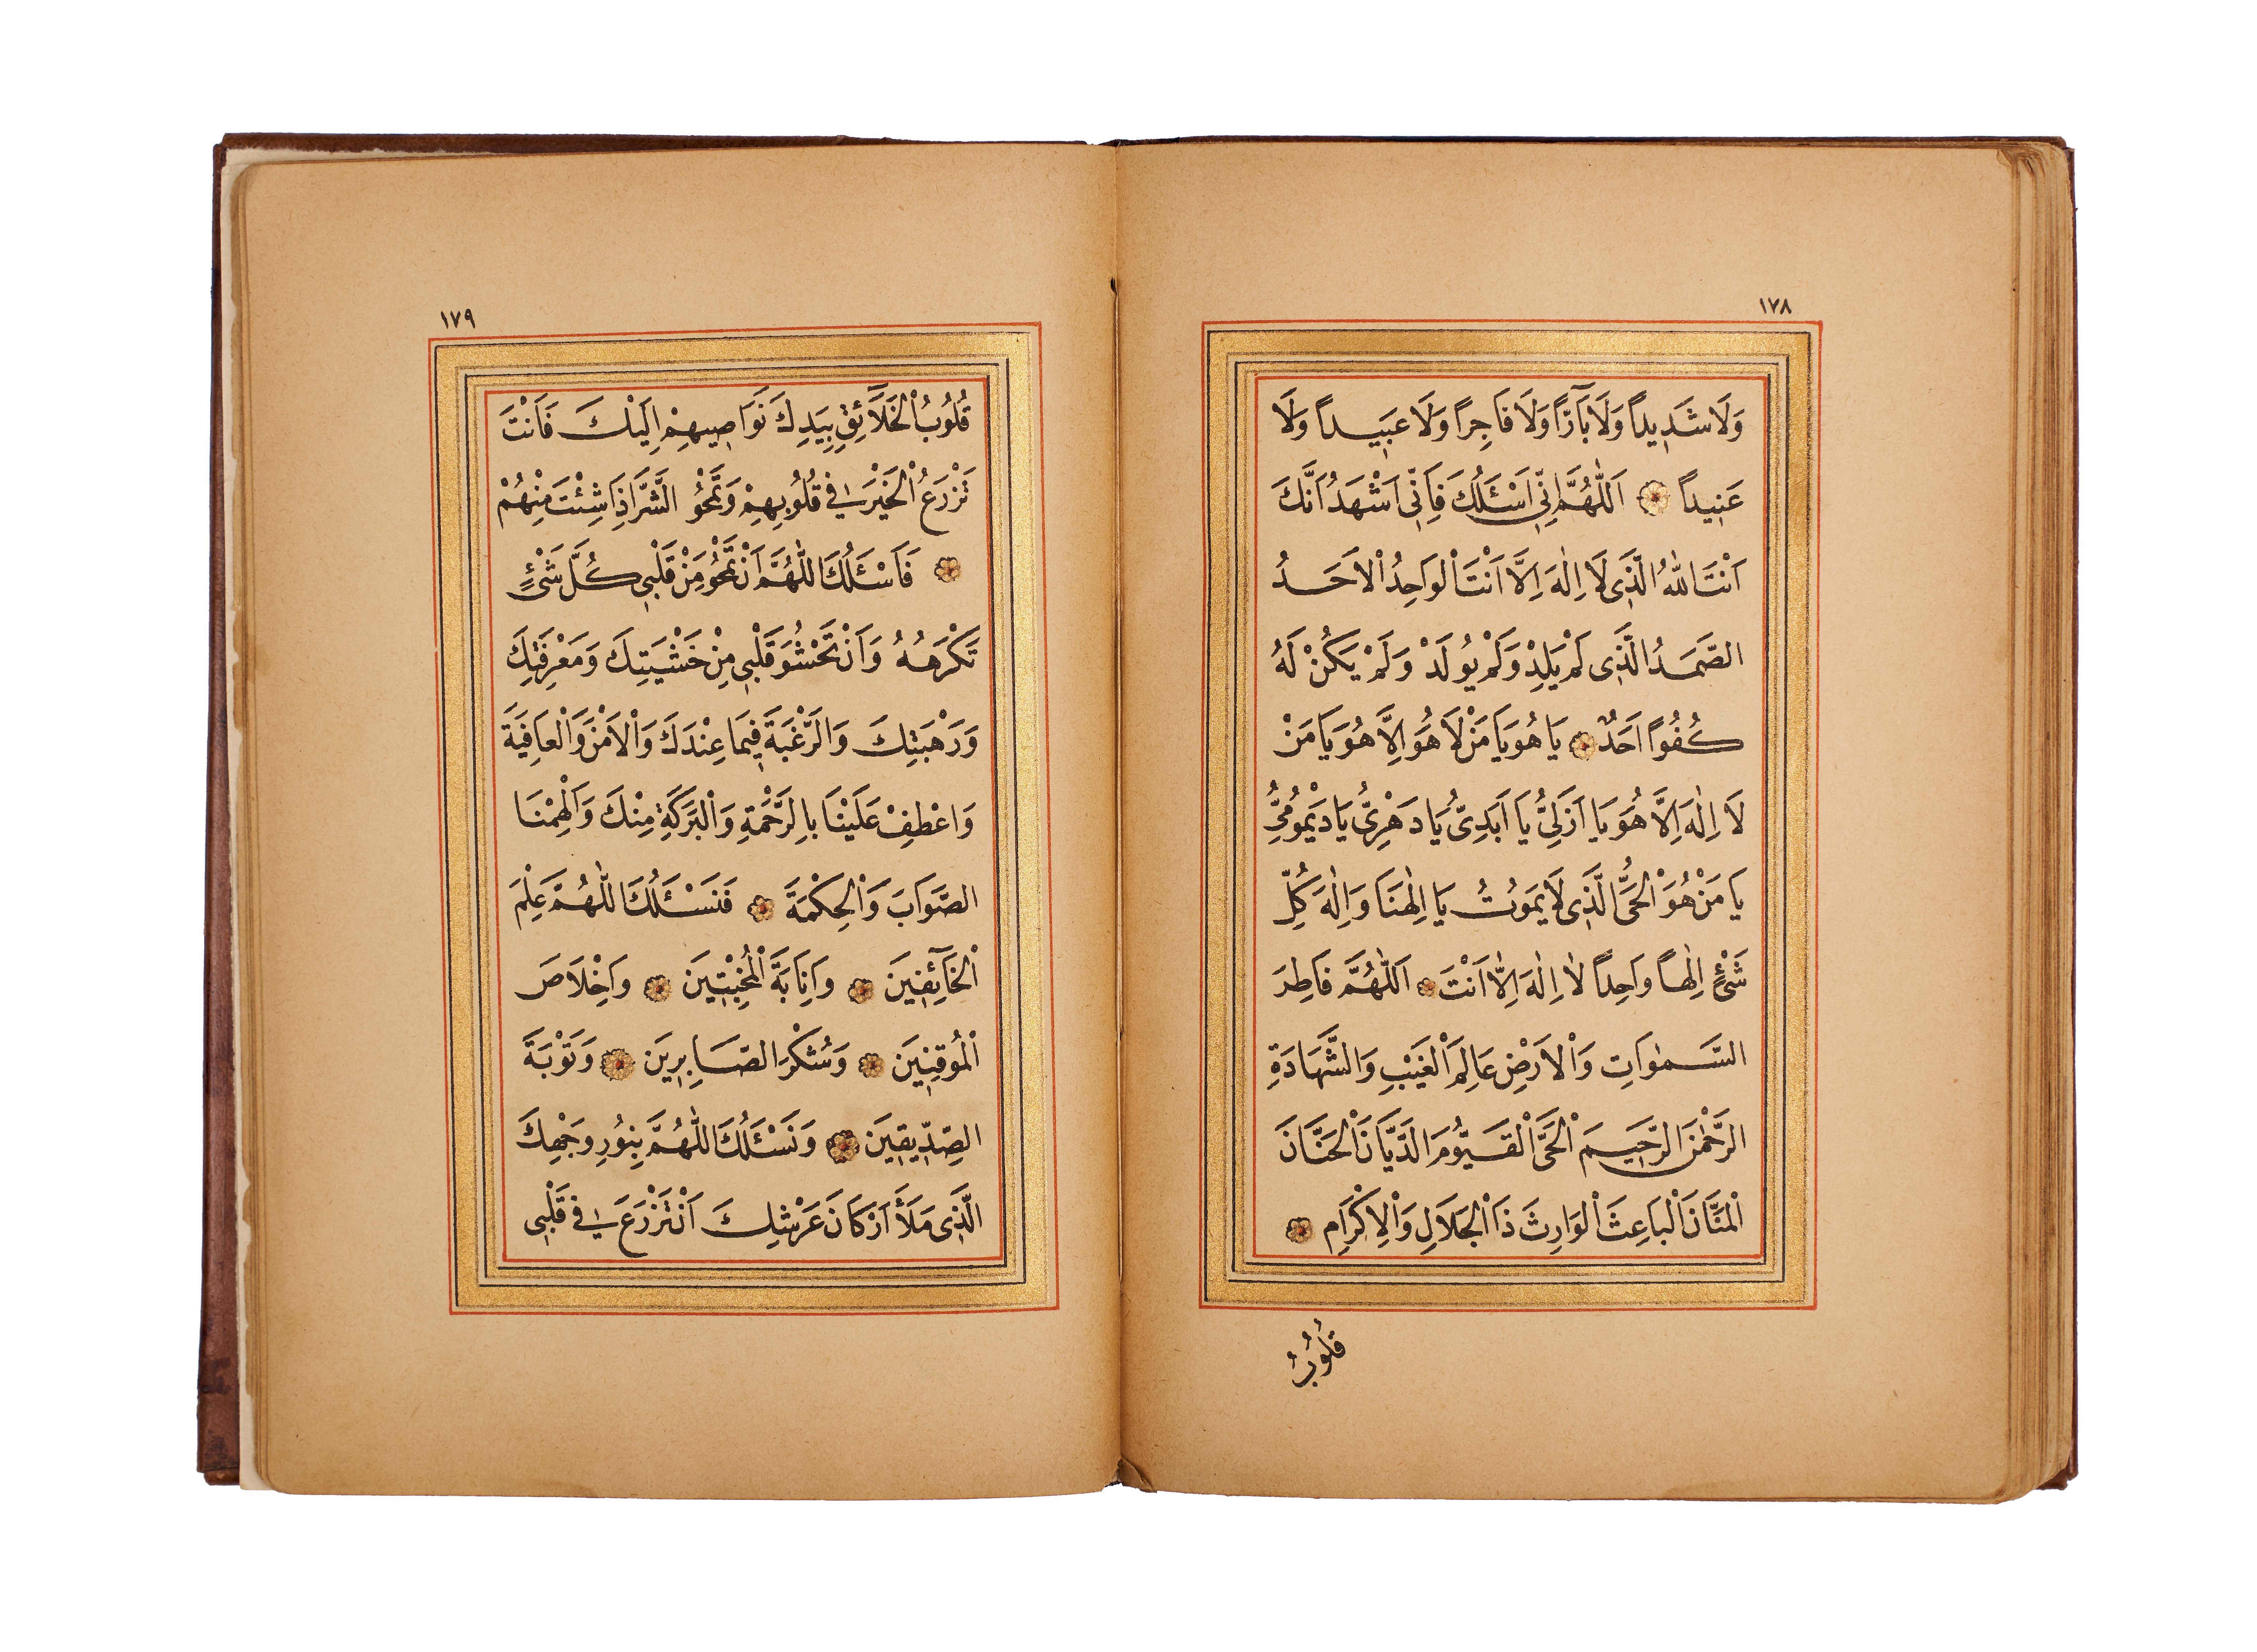 ١٧٨
وَلَا شَدِيداً وَلَا بَآرًّا وَلَا فَاجِراً وَلَا عَبِيداً وَلَا
عَنِيداً اَللّٰهُمَّ اِنِّى اَسْئَلُكَ فَاِنِّى اَشْهَدُ اَنَّكَ
اَنْتَ اللّٰهُ الَّذِى لَا اِلٰهَ اِلَّا اَنْتَ الْوَاحِدُ الْاَحَدُ
الصَّمَدُ الَّذِى لَمْ يَلِدْ وَلَمْ يُولَدْ وَلَمْ يَكُنْ لَهُ
كُفُوًا اَحَدٌ يَا هُوَ يَا مَنْ لَا هُوَ اِلَّا هُوَ يَا مَنْ
لَا اِلٰهَ اِلَّا هُوَ يَا اَزَلِىُّ يَا اَبَدِىُّ يَا دَهْرِىُّ يَا دَيْمُومِىُّ
يَا مَنْ هُوَ الْحَىُّ الَّذِى لَا يَمُوتُ يَا اِلٰهَنَا وَاِلٰهَ كُلِّ
شَىْءٍ اِلٰهاً وَاحِداً لَا اِلٰهَ اِلَّا اَنْتَ اَللّٰهُمَّ فَاطِرَ
السَّمٰوَاتِ وَالْاَرْضِ عَالِمَ الْغَيْبِ وَالشَّهَادَةِ
الرَّحْمٰنَ الرَّحِيمَ الْحَىَّ الْقَيُّومَ الدَّيَّانَ الْحَنَّانَ
الْمَنَّانَ الْبَاعِثَ الْوَارِثَ ذَا الْجَلَالِ وَالْاِكْرَامِ
قُلُوبُ
١٧٩
قُلُوبُ الْخَلَآئِقِ بِيَدِكَ نَوَاصِيهِمْ اِلَيْكَ فَاَنْتَ
تَزْرَعُ الْخَيْرَ فِى قُلُوبِهِمْ وَتَمْحُو الشَّرَّ اِذَا شِئْتَ مِنْهُمْ
فَاَسْئَلُكَ اللّٰهُمَّ اَنْ تَمْحُوَ مِنْ قَلْبِى كُلَّ شَىْءٍ
تَكْرَهُهُ وَاَنْ تَحْشُوَ قَلْبِى مِنْ خَشْيَتِكَ وَمَعْرِفَتِكَ
وَرَهْبَتِكَ وَالرَّغْبَةَ فِيمَا عِنْدَكَ وَالْاَمْنَ وَالْعَافِيَةَ
وَاعْطِفْ عَلَيْنَا بِالرَّحْمَةِ وَالْبَرَكَةِ مِنْكَ وَاَلْهِمْنَا
الصَّوَابَ وَالْحِكْمَةَ فَنَسْئَلُكَ اللّٰهُمَّ عِلْمَ
الْخَآئِفِينَ وَاِنَابَةَ الْمُخْبِتِينَ وَاِخْلَاصَ
الْمُوقِنِينَ وَشُكْرَ الصَّابِرِينَ وَتَوْبَةَ
الصِّدِّيقِينَ وَنَسْئَلُكَ اللّٰهُمَّ بِنُورِ وَجْهِكَ
الَّذِى مَلَأَ اَرْكَانَ عَرْشِكَ اَنْ تَزْرَعَ فِى قَلْبِى